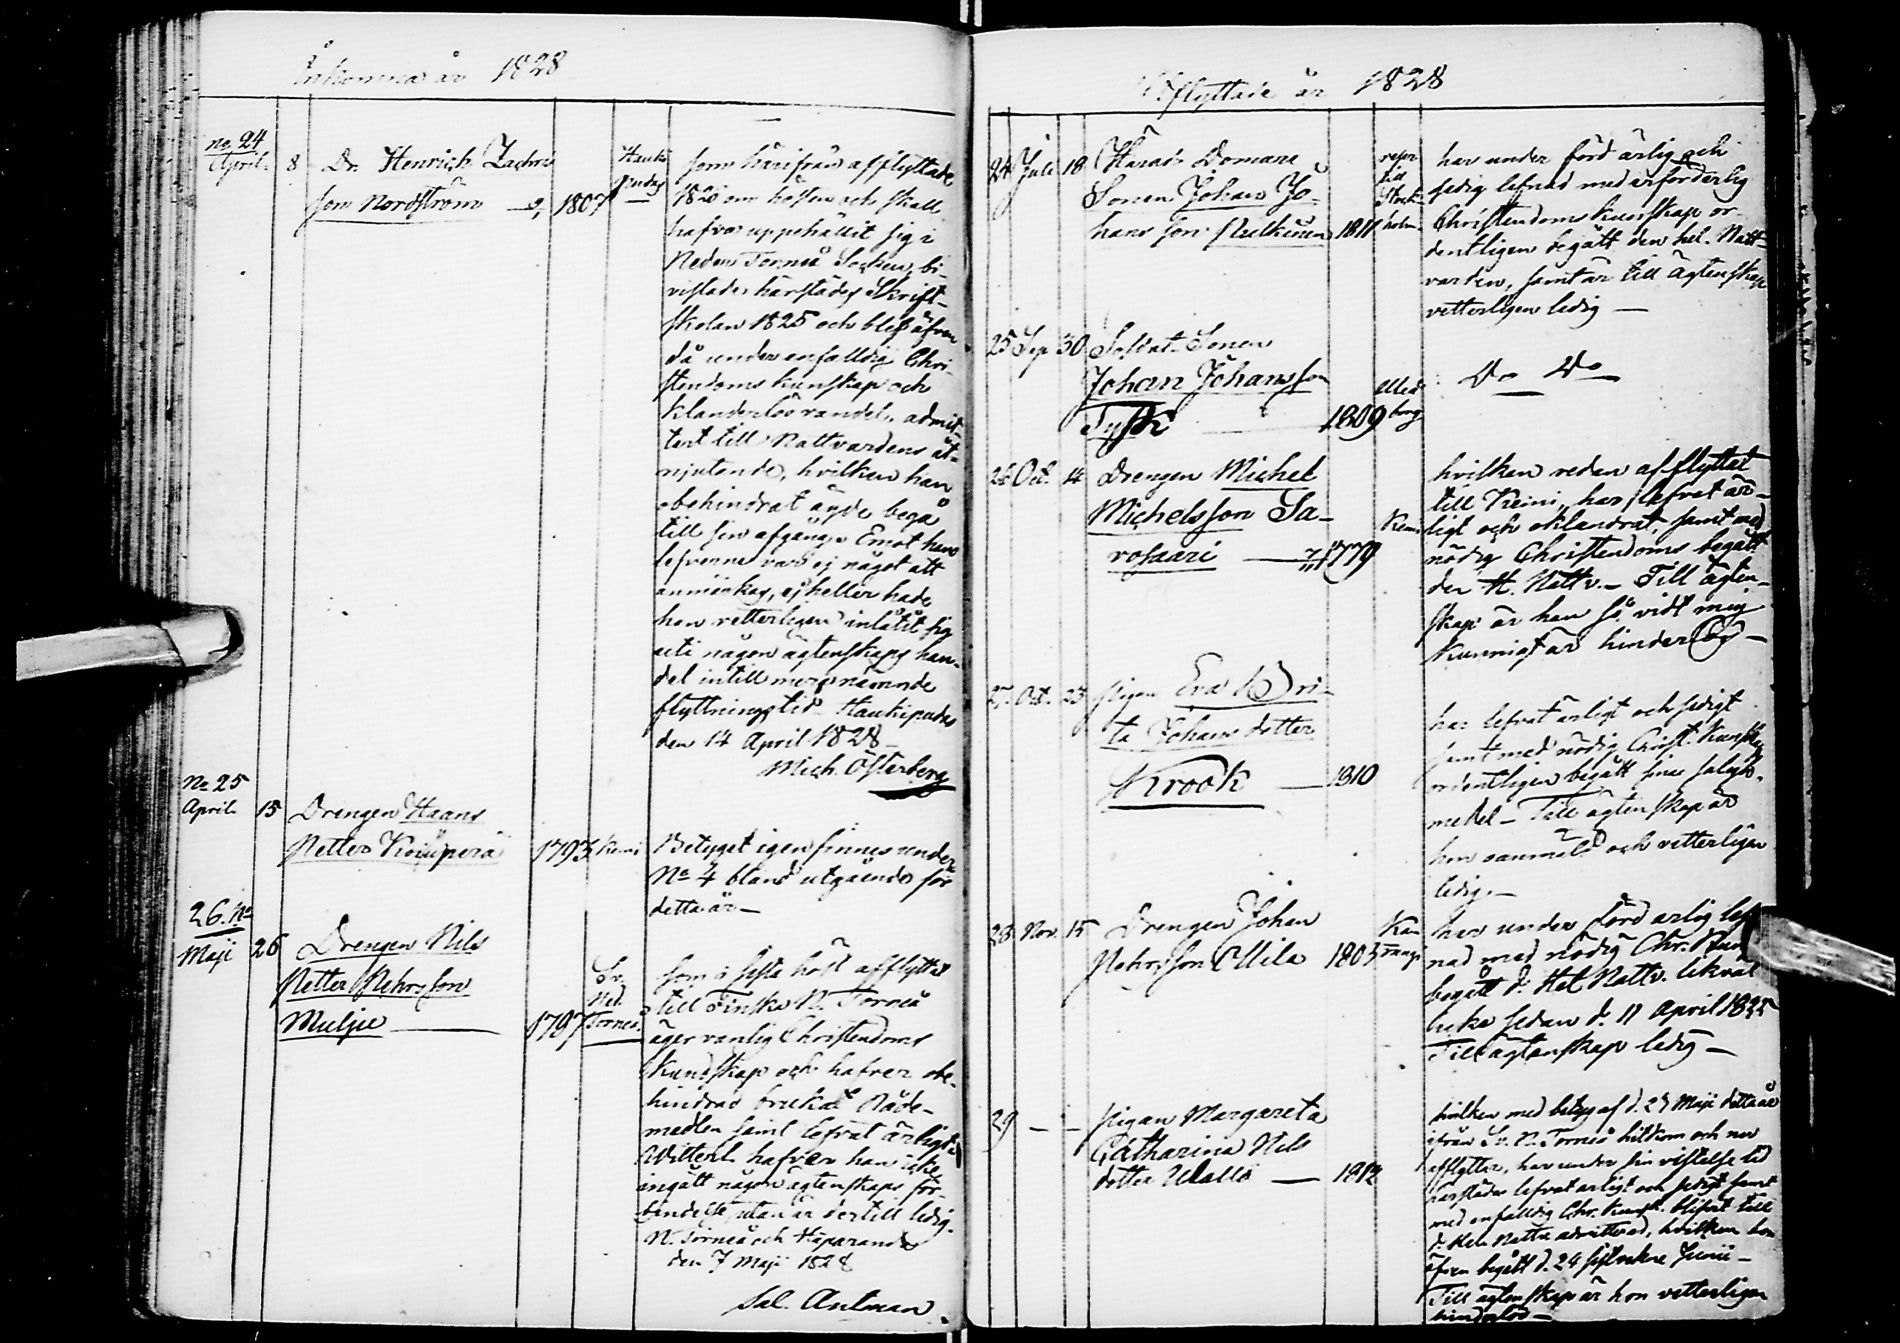 Ankomna år 1828
No 24
April. 8 Dr. Henrich Zachris
son Nordström 1807
Hauki
pudas
som härifrån afflyttade
1826 om hösten och skall
hafva uppehållit sig i
Neder Torneå Socken, bi-
vistade härstädes Skrift-
skolan 1825 och blef äfven
då under enfalldig Chri-
stendoms kunskap och
klanderlös vandel, admit-
terd till Nattvardens åt-
njutande, hvilken han
obehindrat ägde begå
till sin afgång. Emot hans
lefverne var ej något att
anmärka, ej heller hade
han vetterligen inlåtit sig
uti någon ägtenskaps han-
del intill mer 
flyttningstid. Haukipudas
den 14 April 1828
Mich. Österberg
No 25
April 15 Drengen Haans
Petter 1793 Kemi
Betyget igenfinnes under
No 4 bland utgående för
detta år —
26. No
Maji 26 Drengen Nils
Petter Pehrsson
Mulju — 1797
Sv.
Ned.
Torneå
som i sista höst afflyttat
till Finska N. Torneå
äger vanlig Christendoms
kundskap och hafver obe-
hindrad brukat Nåde-
medlen samt lefvat ärligt.
Witterl. hafver han icke
ingått någon ägtenskaps för-
bindelse, utan är dertill ledig.
N. Torneå och Haparanda
den 7 Maji 1828
Sal. Antman
Utflyttade år 1828
24 Juli 18 Härads Domare
Sonen Johan Jo-
hans son Pulkinen 1811
till
Stock-
holm
har under förd ärlig och
sedig lefnad med erforderlig
Christendoms kunskap or-
dentligen begått den hel. Natt-
varden, samt är till ägtenskap
vetterligen ledig —
25 Sep 30 Soldat Sonen
Johan Johansson
Tysk — 1809
borg
Do Do
26 Oct. 14 Drengen Michel
Michelsson Sa-
rosaari — 1779
Kemi
hvilken redan afflyttat
till Kemi, har lefvat är-
ligt och oklandrat samt med
nödig Christendoms begått
den H. Nattv. — Till ägten-
skap är han så vidt mig
kunnigt är hinderlös —
27. Oct. 23 Pigan Eva Bri-
ta Johans dotter
Krook — 1810
har lefvat ärligt och sedigt
samt med nödig Christ. kunsk.
ordentligen begått sine saligh.
medel — Till ägtenskap är
hon oanmäld och vetterligen
ledig. —
28 Nov. 15 Drengen Johan
Pehrsson Uila 1803
har under förd ärlig lef
nad med nödig Chr. Kun
begått d. Hel. Nattv.
sedan d. 11 April
Till ägtenskap ledig —
29 — — Pigan Margareta
Catharina Nils
dotter — 1812
hvilken med betyg af d. 27 Maji detta år
ifrån Sv. N. Torneå hitkom och nu
afflyttar, har under sin vistelse tid
härstädes lefvat ärligt och sedigt samt
med enfalldig Chr. Kunsk. blifvit till
d. Hel. Nattv. admitterad, hvilken hon
äfven begått d. 24 sistvekne Junii —
Till ägtenskap är hon vetterligen
hinderlös —